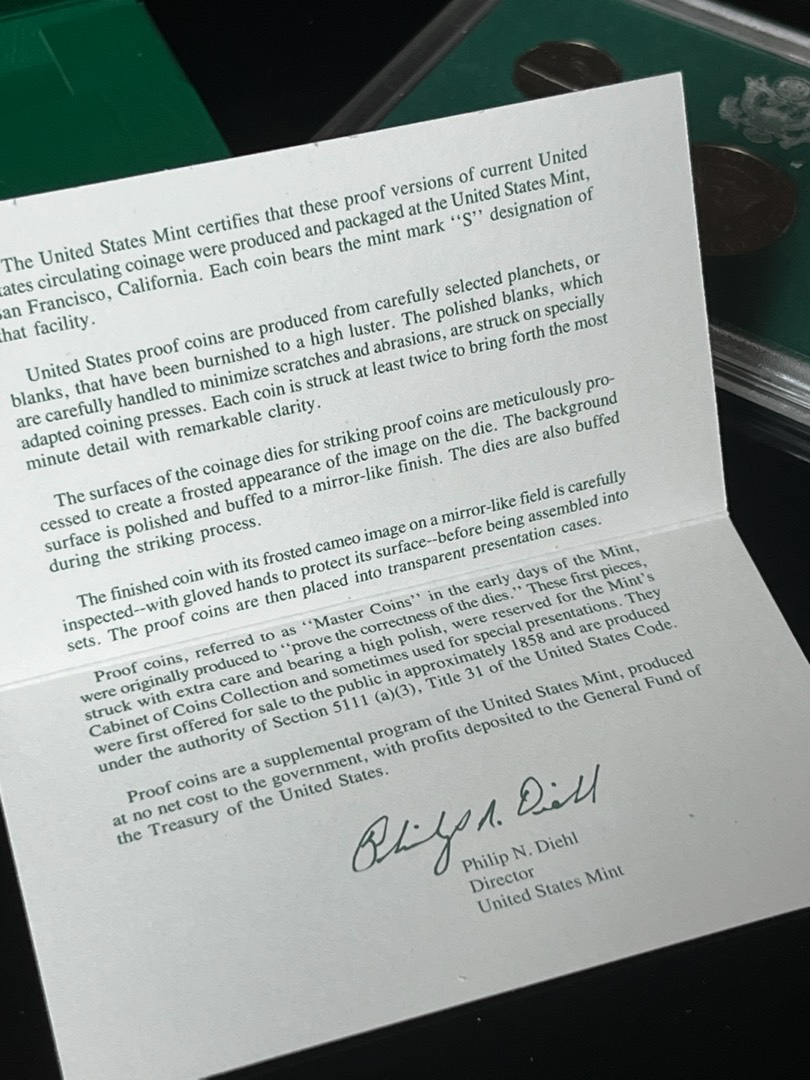 The United States Mint certifies that these proof versions of current United
ates circulating coinage were produced and packaged at the United States Mint,
an Francisco, California. Each coin bears the mint mark ‘‘S’’ designation of
hat facility.
United States proof coins are produced from carefully selected planchets, or
blanks, that have been burnished to a high luster. The polished blanks, which
are carefully handled to minimize scratches and abrasions, are struck on specially
adapted coining presses. Each coin is struck at least twice to bring forth the most
minute detail with remarkable clarity.
The surfaces of the coinage dies for striking proof coins are meticulously pro-
cessed to create a frosted appearance of the image on the die. The background
surface is polished and buffed to a mirror-like finish. The dies are also buffed
during the striking process.
The finished coin with its frosted cameo image on a mirror-like field is carefully
inspected--with gloved hands to protect its surface--before being assembled into
sets. The proof coins are then placed into transparent presentation cases.
Proof coins, referred to as ‘‘Master Coins’’ in the early days of the Mint,
were originally produced to ‘‘prove the correctness of the dies.’’ These first pieces,
struck with extra care and bearing a high polish, were reserved for the Mint’s
Cabinet of Coins Collection and sometimes used for special presentations. They
were first offered for sale to the public in approximately 1858 and are produced
under the authority of Section 5111 (a)(3), Title 31 of the United States Code.
Proof coins are a supplemental program of the United States Mint, produced
at no net cost to the government, with profits deposited to the General Fund of
the Treasury of the United States.
Philip N. Diehl
Philip N. Diehl
Director
United States Mint